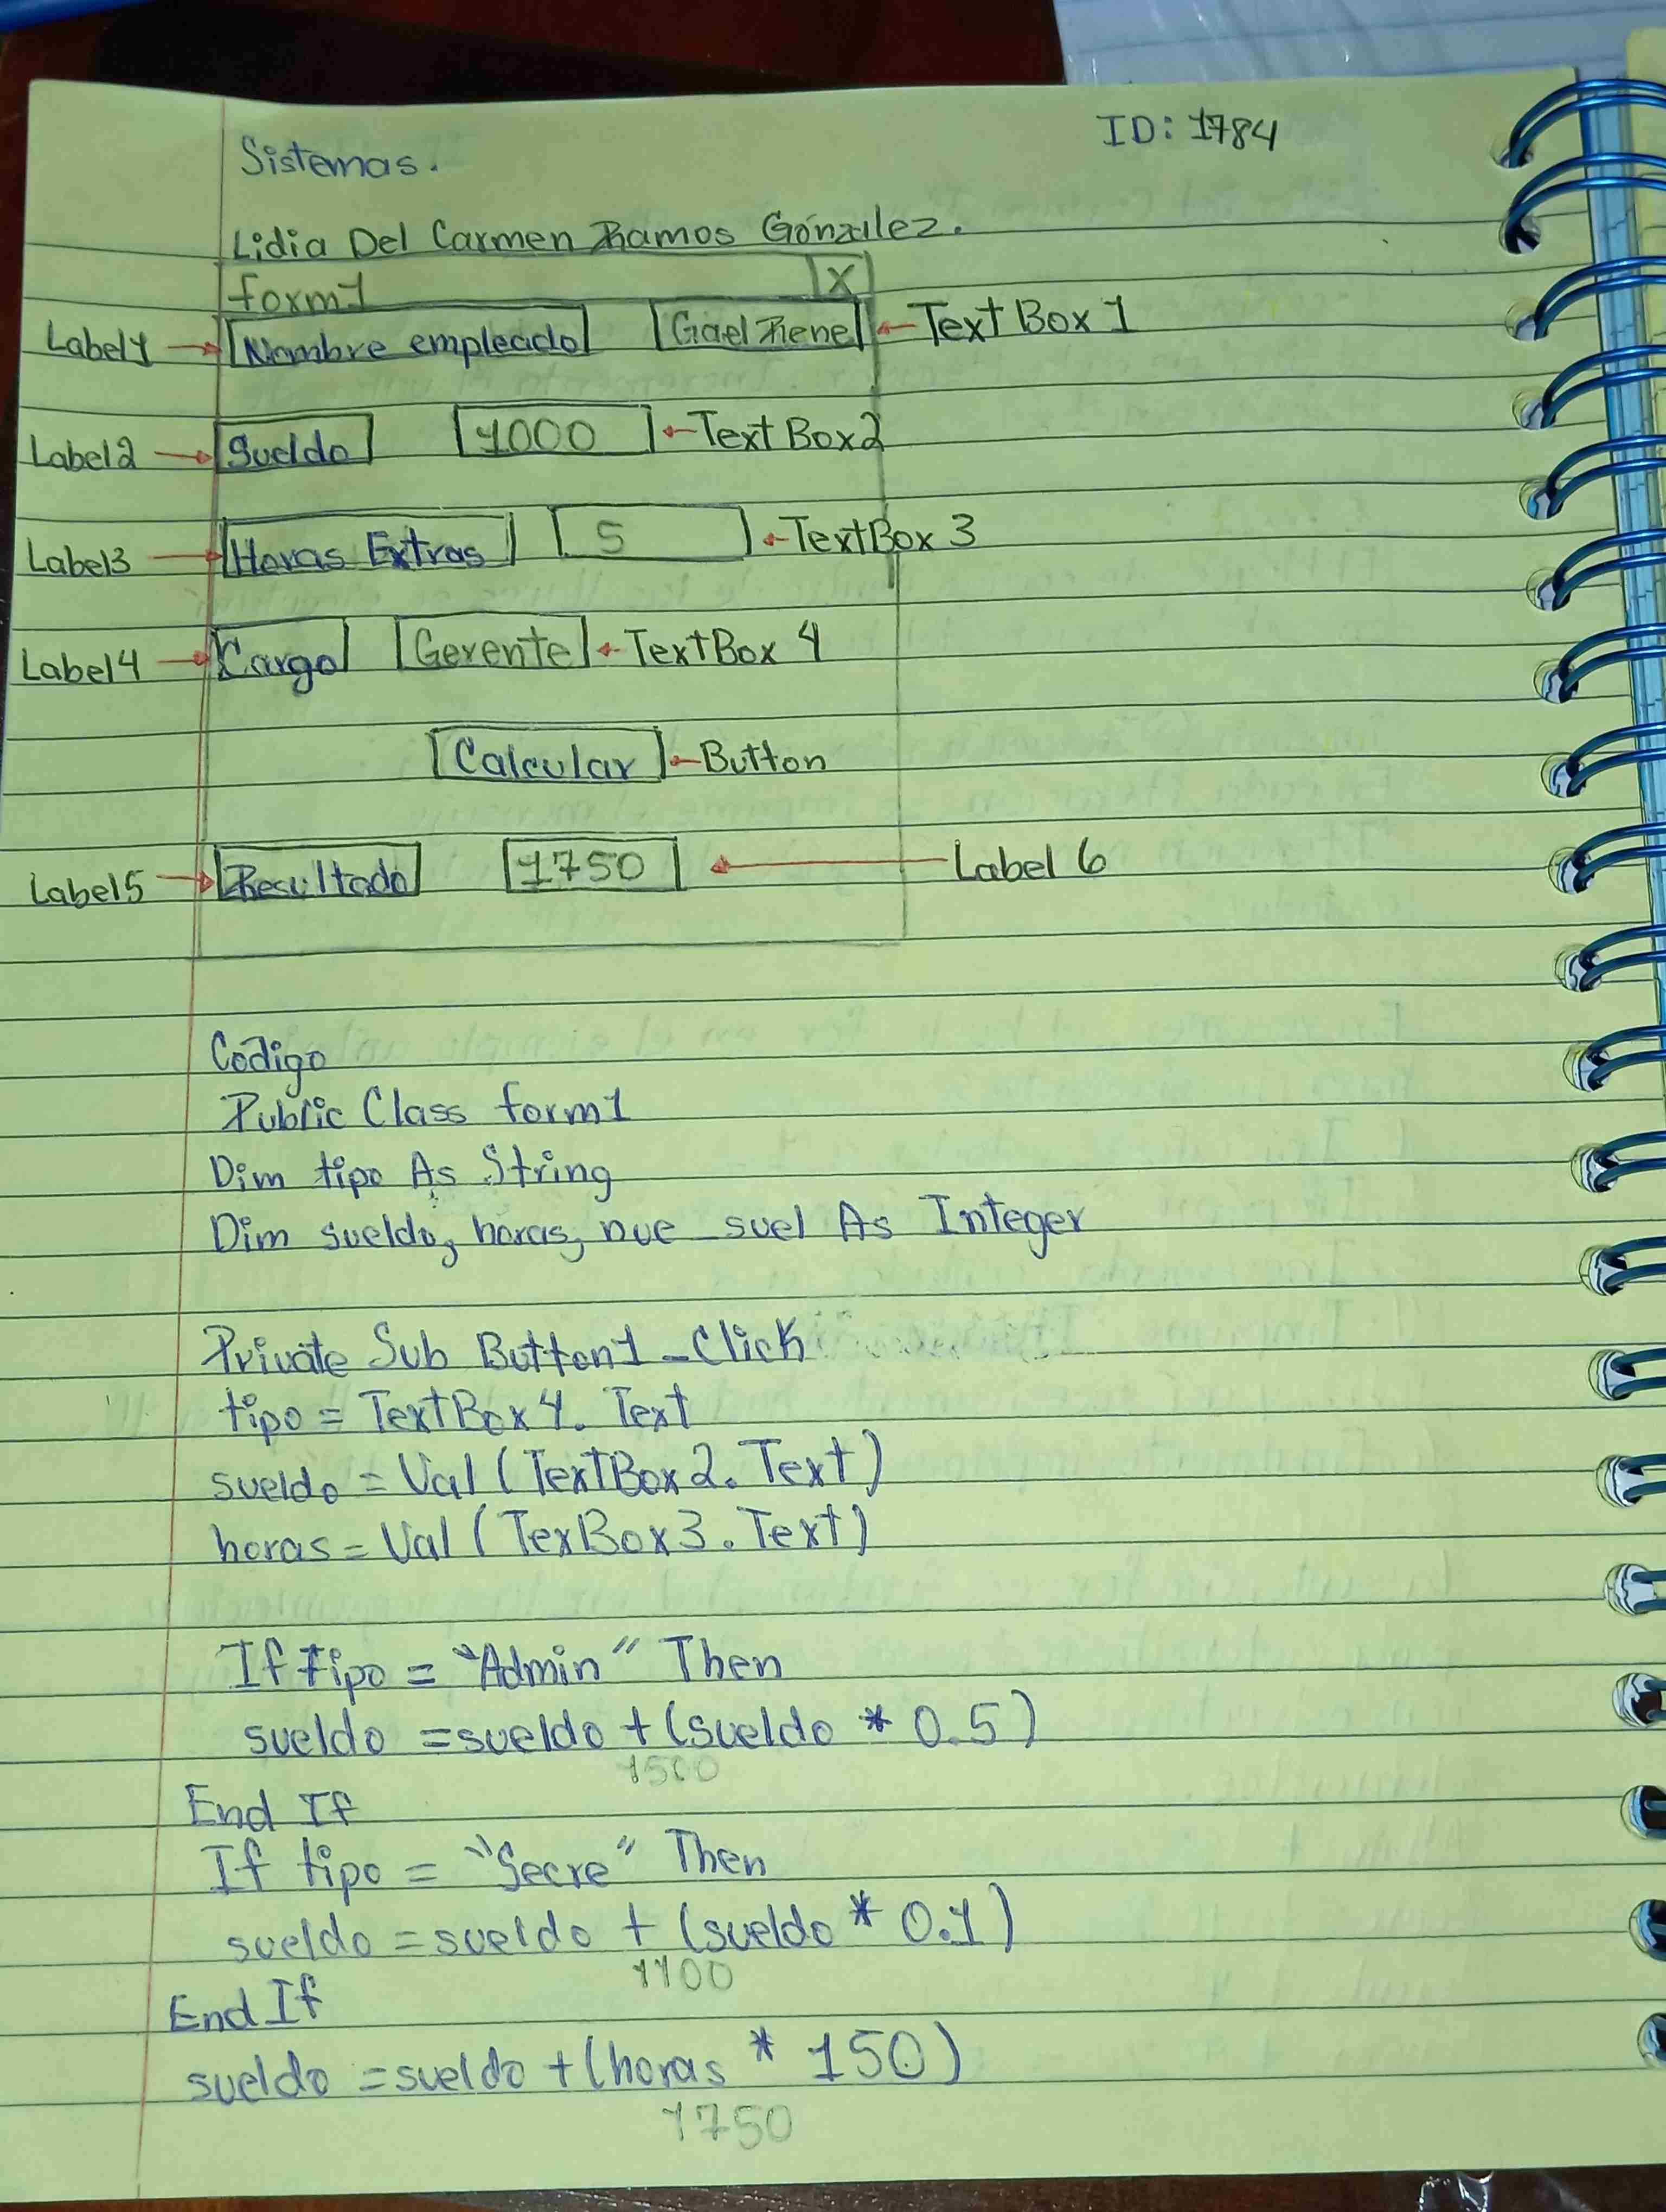 ID: 1784
Sistemas.
Lidia Del Carmen Ramos Gónzalez.
form1 X
Label1 Nombre empleado Gael Rene TextBox 1
Label2 Sueldo 1000 Text Box2
Label3 Horas Extras 5 TextBox 3
Label4 Cargo Gerente TextBox 4
Calcular Button
Label5 Resultado 1750 Label 6
Código
Public Class form1
Dim tipo As String
Dim sueldo, horas, nue_suel As Integer
Private Sub Button1_Click
tipo = TextBox4. Text
sueldo = Val (TextBox2. Text)
horas = Val (TexBox3. Text)
If tipo = "Admin" Then
sueldo = sueldo + (sueldo * 0.5)
1500
End If
If tipo = "Secre" Then
sueldo = sueldo + (sueldo * 0.1)
1100
End If
sueldo = sueldo + (horas * 150)
1750